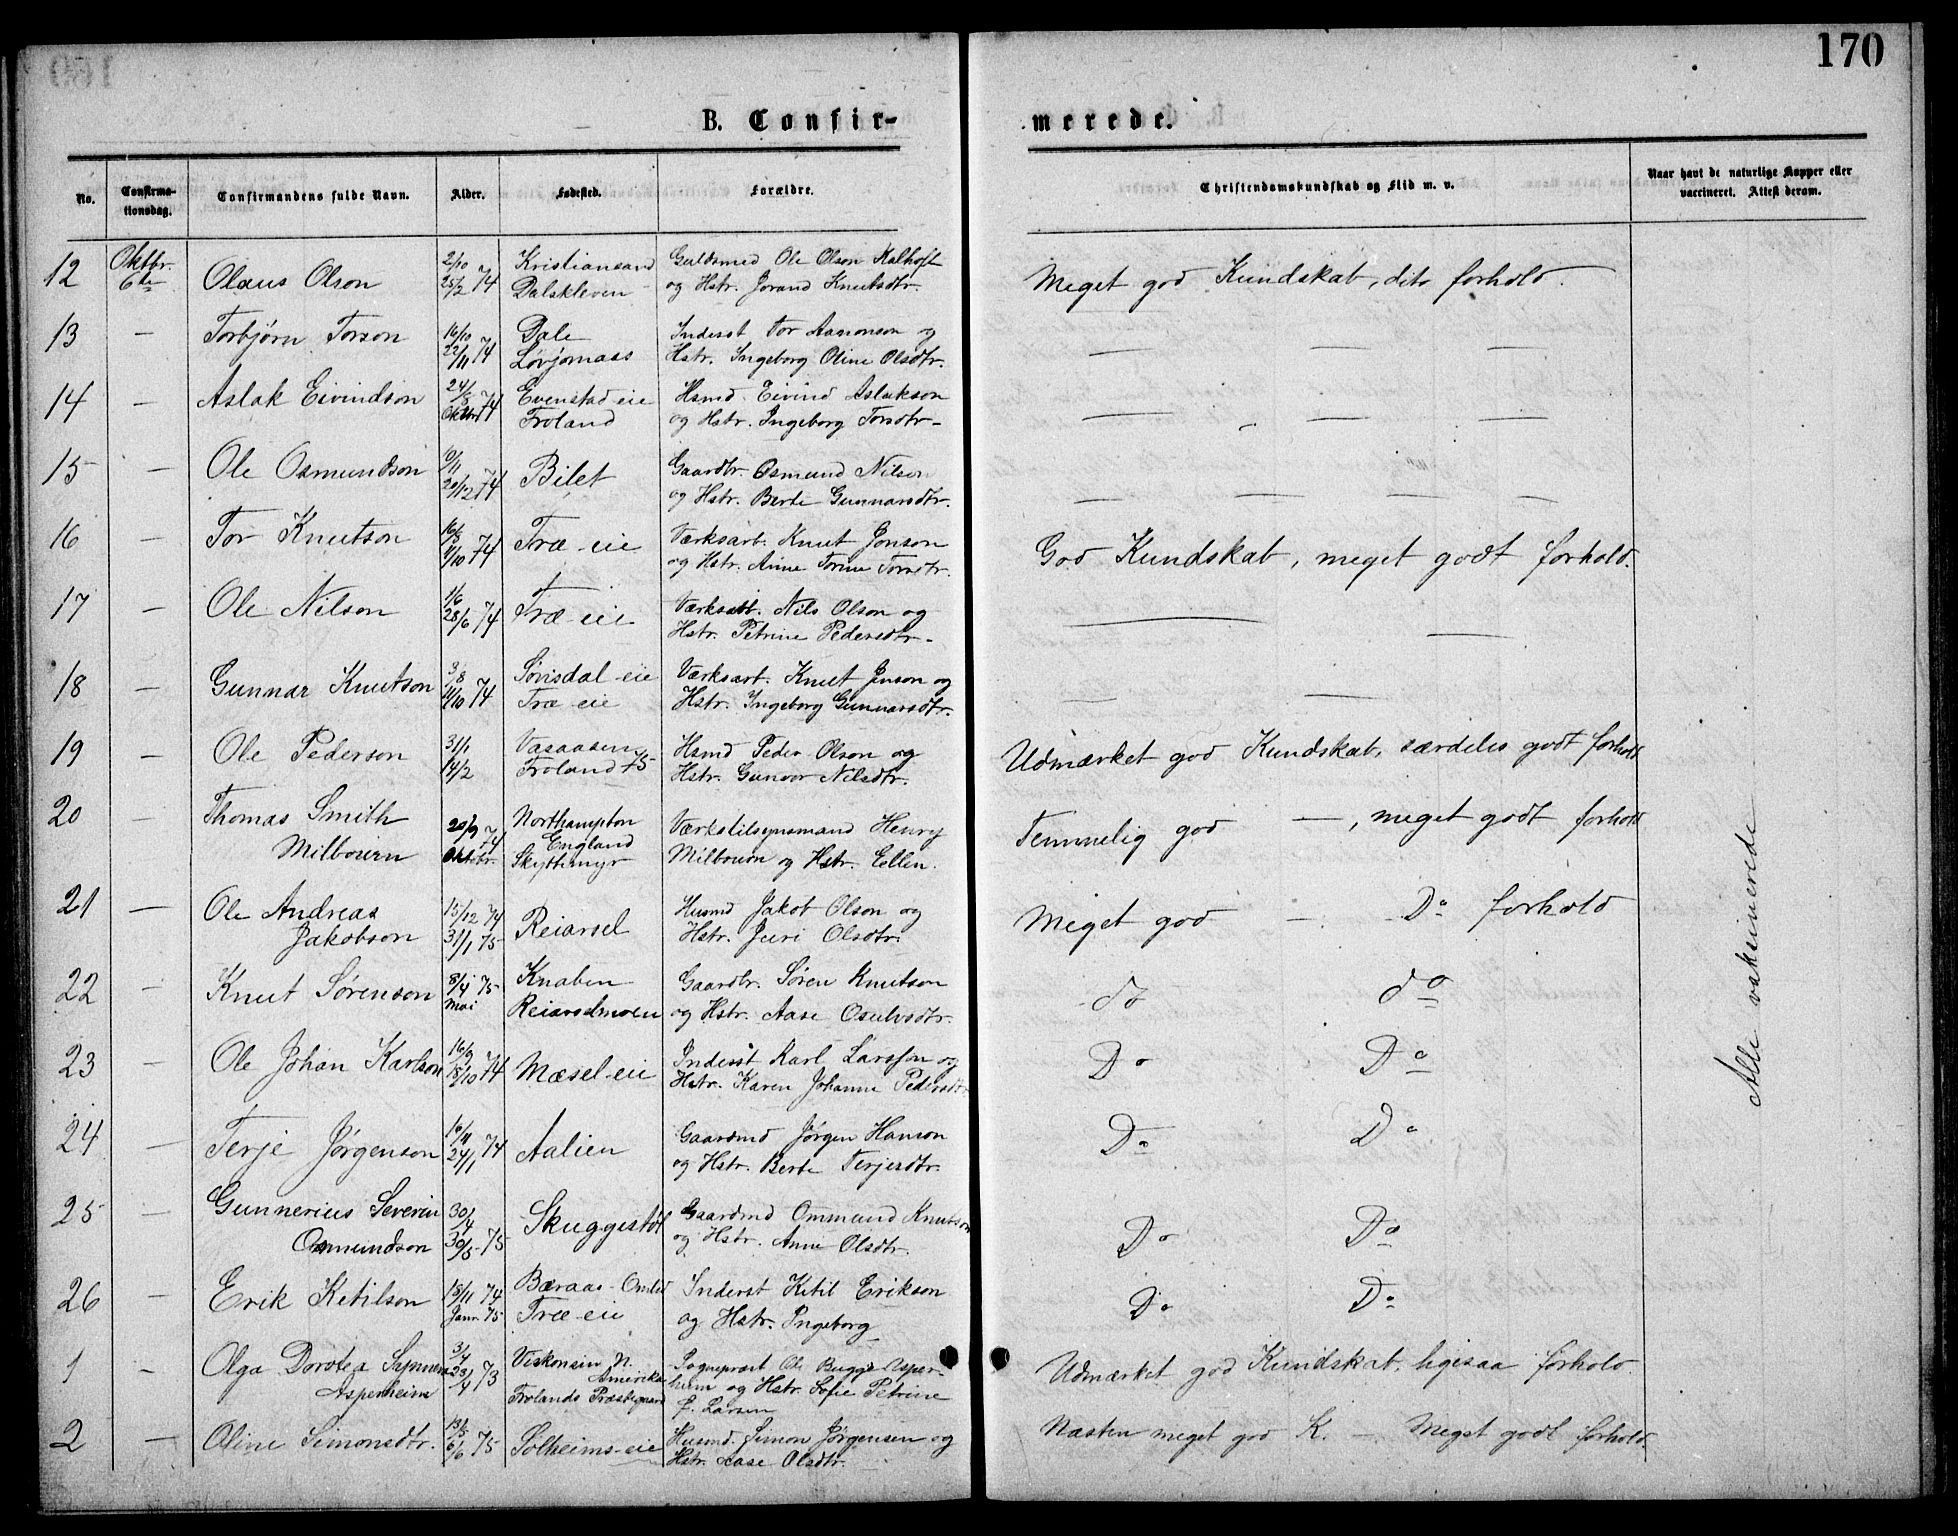 170
B. Confir-
merede.
No.
Confirma-
tionsdag.
Confirmandens fulde Navn.
Alder.
Fødested.
Forældre.
Christendomskundskab og Flid m. v.
Naar havt de naturlige Kopper eller
vaccineret. Attest derom.
12 Oktbr. 6te Olaus Olson 2/10 25/2 74 Kristiansand Dalskleven Guldsmed Ole Olson Kalhoft
og Hstr. Jorand Knutsdtr. Meget god Kundskab, dito forhold.
13 — Torbjørn Torson 16/10 22/11 74 Dale Løvjomaas Inderst Tor Aasmonson og
Hstr. Ingeborg Oline Olsdtr. — — —
14 — Aslak Eivindson 24/8 Oktbr 74 Evenstad-eie Froland Hsmd. Eivind Aslakson
og Hstr. Ingeborg Torsdtr. — — —
15 — Ole Osmundson 9/11 20/12 74 Bilet Gaardbr. Osmund Nilson
og Hstr. Berte Gunnarsdtr. — — — —
16 — Tor Knutson 16/8 11/10 74 Træ-eie Værksarb. Knut Jonson
og Hstr. Anne Torine Torsdtr. God Kundskab, meget godt forhold.
17 — Ole Nilson 1/6 28/6 74 Træ-eie Værksarb. Nils Olson og
Hstr. Petrine Pedersdtr. — —
18 — Gunnar Knutson 3/8 11/10 74 Sørisdal-eie Træ-eie Værksarb. Knut Jenson og
Hstr. Ingeborg Gunnarsdtr. — —
19 — Ole Pederson 31/1 14/2 75 Vasaasen Froland Hsmd Peder Olson og
Hstr. Gunvor Nilsdtr. Udmærket god Kundskab, særdeles godt forhold
20 Thomas Smith
Milbourn 20/9 74 Oktobr. Northampton England Skyttemyr Værkstilsynsmand Henry
Milbourn og Hstr. Ellen. Temmelig god —, meget godt forhold
21 — Ole Andreas
Jakobson 15/12 74 31/1 75 Reiarsel Husmd Jakob Olson og
Hstr. Juri Olsdtr. Meget god — Do forhold
22 — Knut Sørenson 8/4 75 Mai Knaben Reiarselmoen Gaardbr. Søren Knutson
og Hstr. Aase Osulvsdtr. do do
23 — Ole Johan Karlson 16/9 18/10 74 Mæsel-eie Inderst Karl Larsson og
Hstr. Karen Johanne Pedersdtr. Do Do
24 — Terje Jørgenson 16/11 24/1 74 Aalien Gaardmd Jørgen Hanson
og Hstr. Berte Terjesdtr. Do Do
25 — Gunnerius Severin
Osmundson 30/4 30/5 75 Skuggestøl Gaardmd Ommund Knutson
og Hstr. Anne Olsdtr. Do Do
26 — Erik Ketilson 18/11 74 Janr. 75 Bæraas Omlid Træ-eie Inderst Ketil Erikson
og Hstr. Ingeborg Do Do
1 — Olga Dorotea Synnøva
Asperheim 3/4 23/4 73 Viskonsin N. Amerika Frolands Præstegaard Sogneprest Ole Bugge Asper-
heim og Hstr. Sofie Petrine
f. Larsen Udmærket god Kundskab. ligesaa forhold.
2 — Oline Simonsdtr. 13/5 6/6 75 Solheims-eie Husmd. Simon Jørgensen og
Hstr. Aase Olsdtr. Næsten meget god K. — Meget godt forhold.
Alle vaksinerede